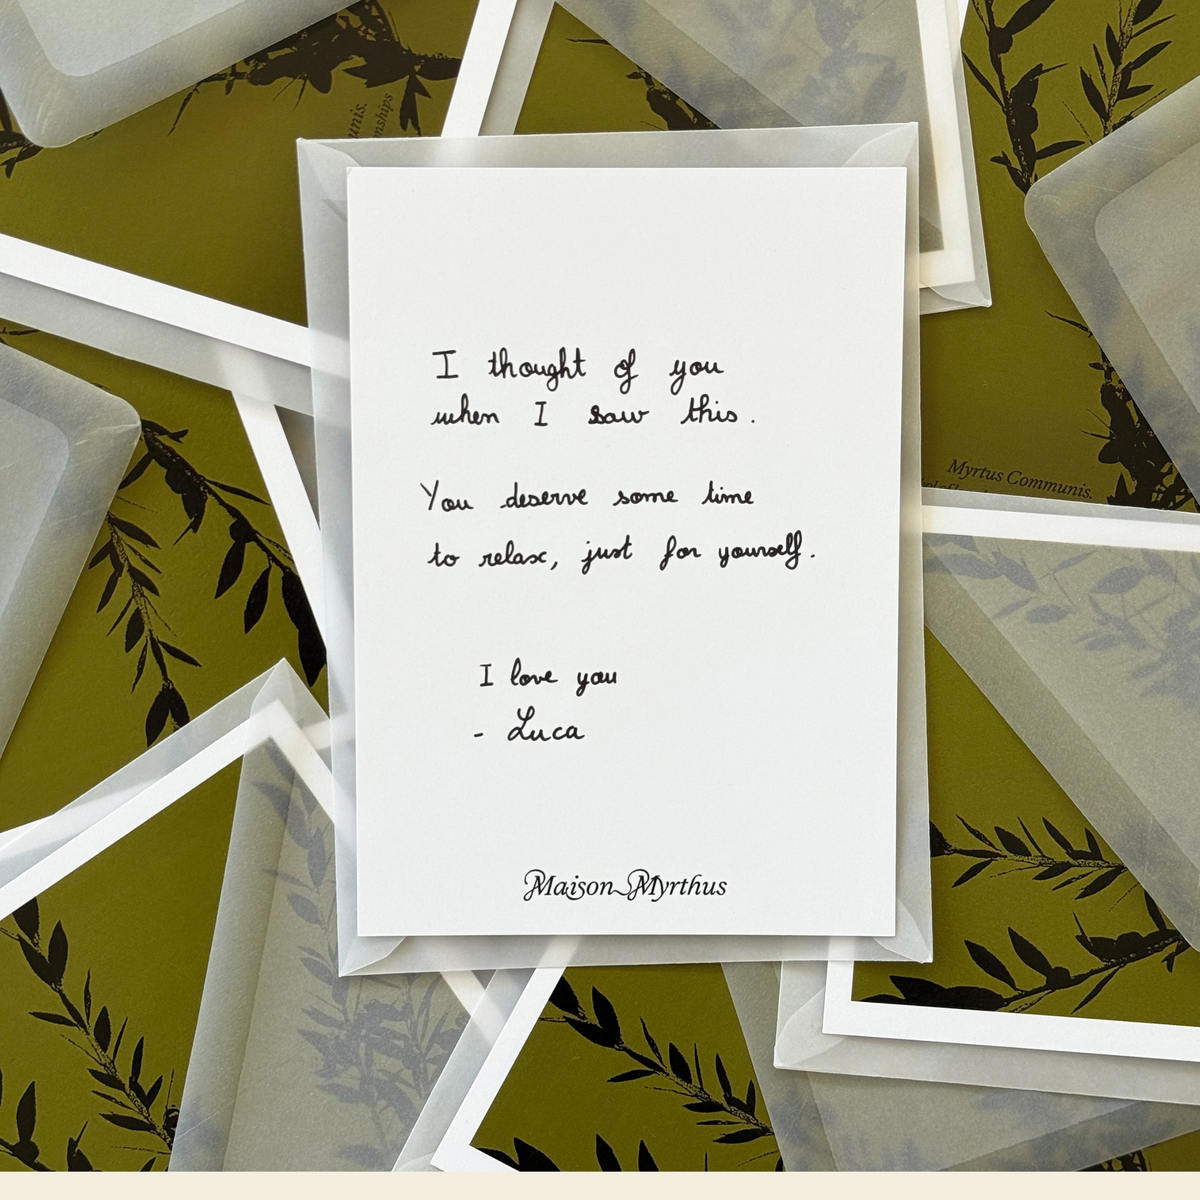 unis.
nships
I thought of you
when I saw this.
You deserve some time
to relax, just for yourself.
I love you
- Luca
Maison Myrthus
Myrtus Communis.